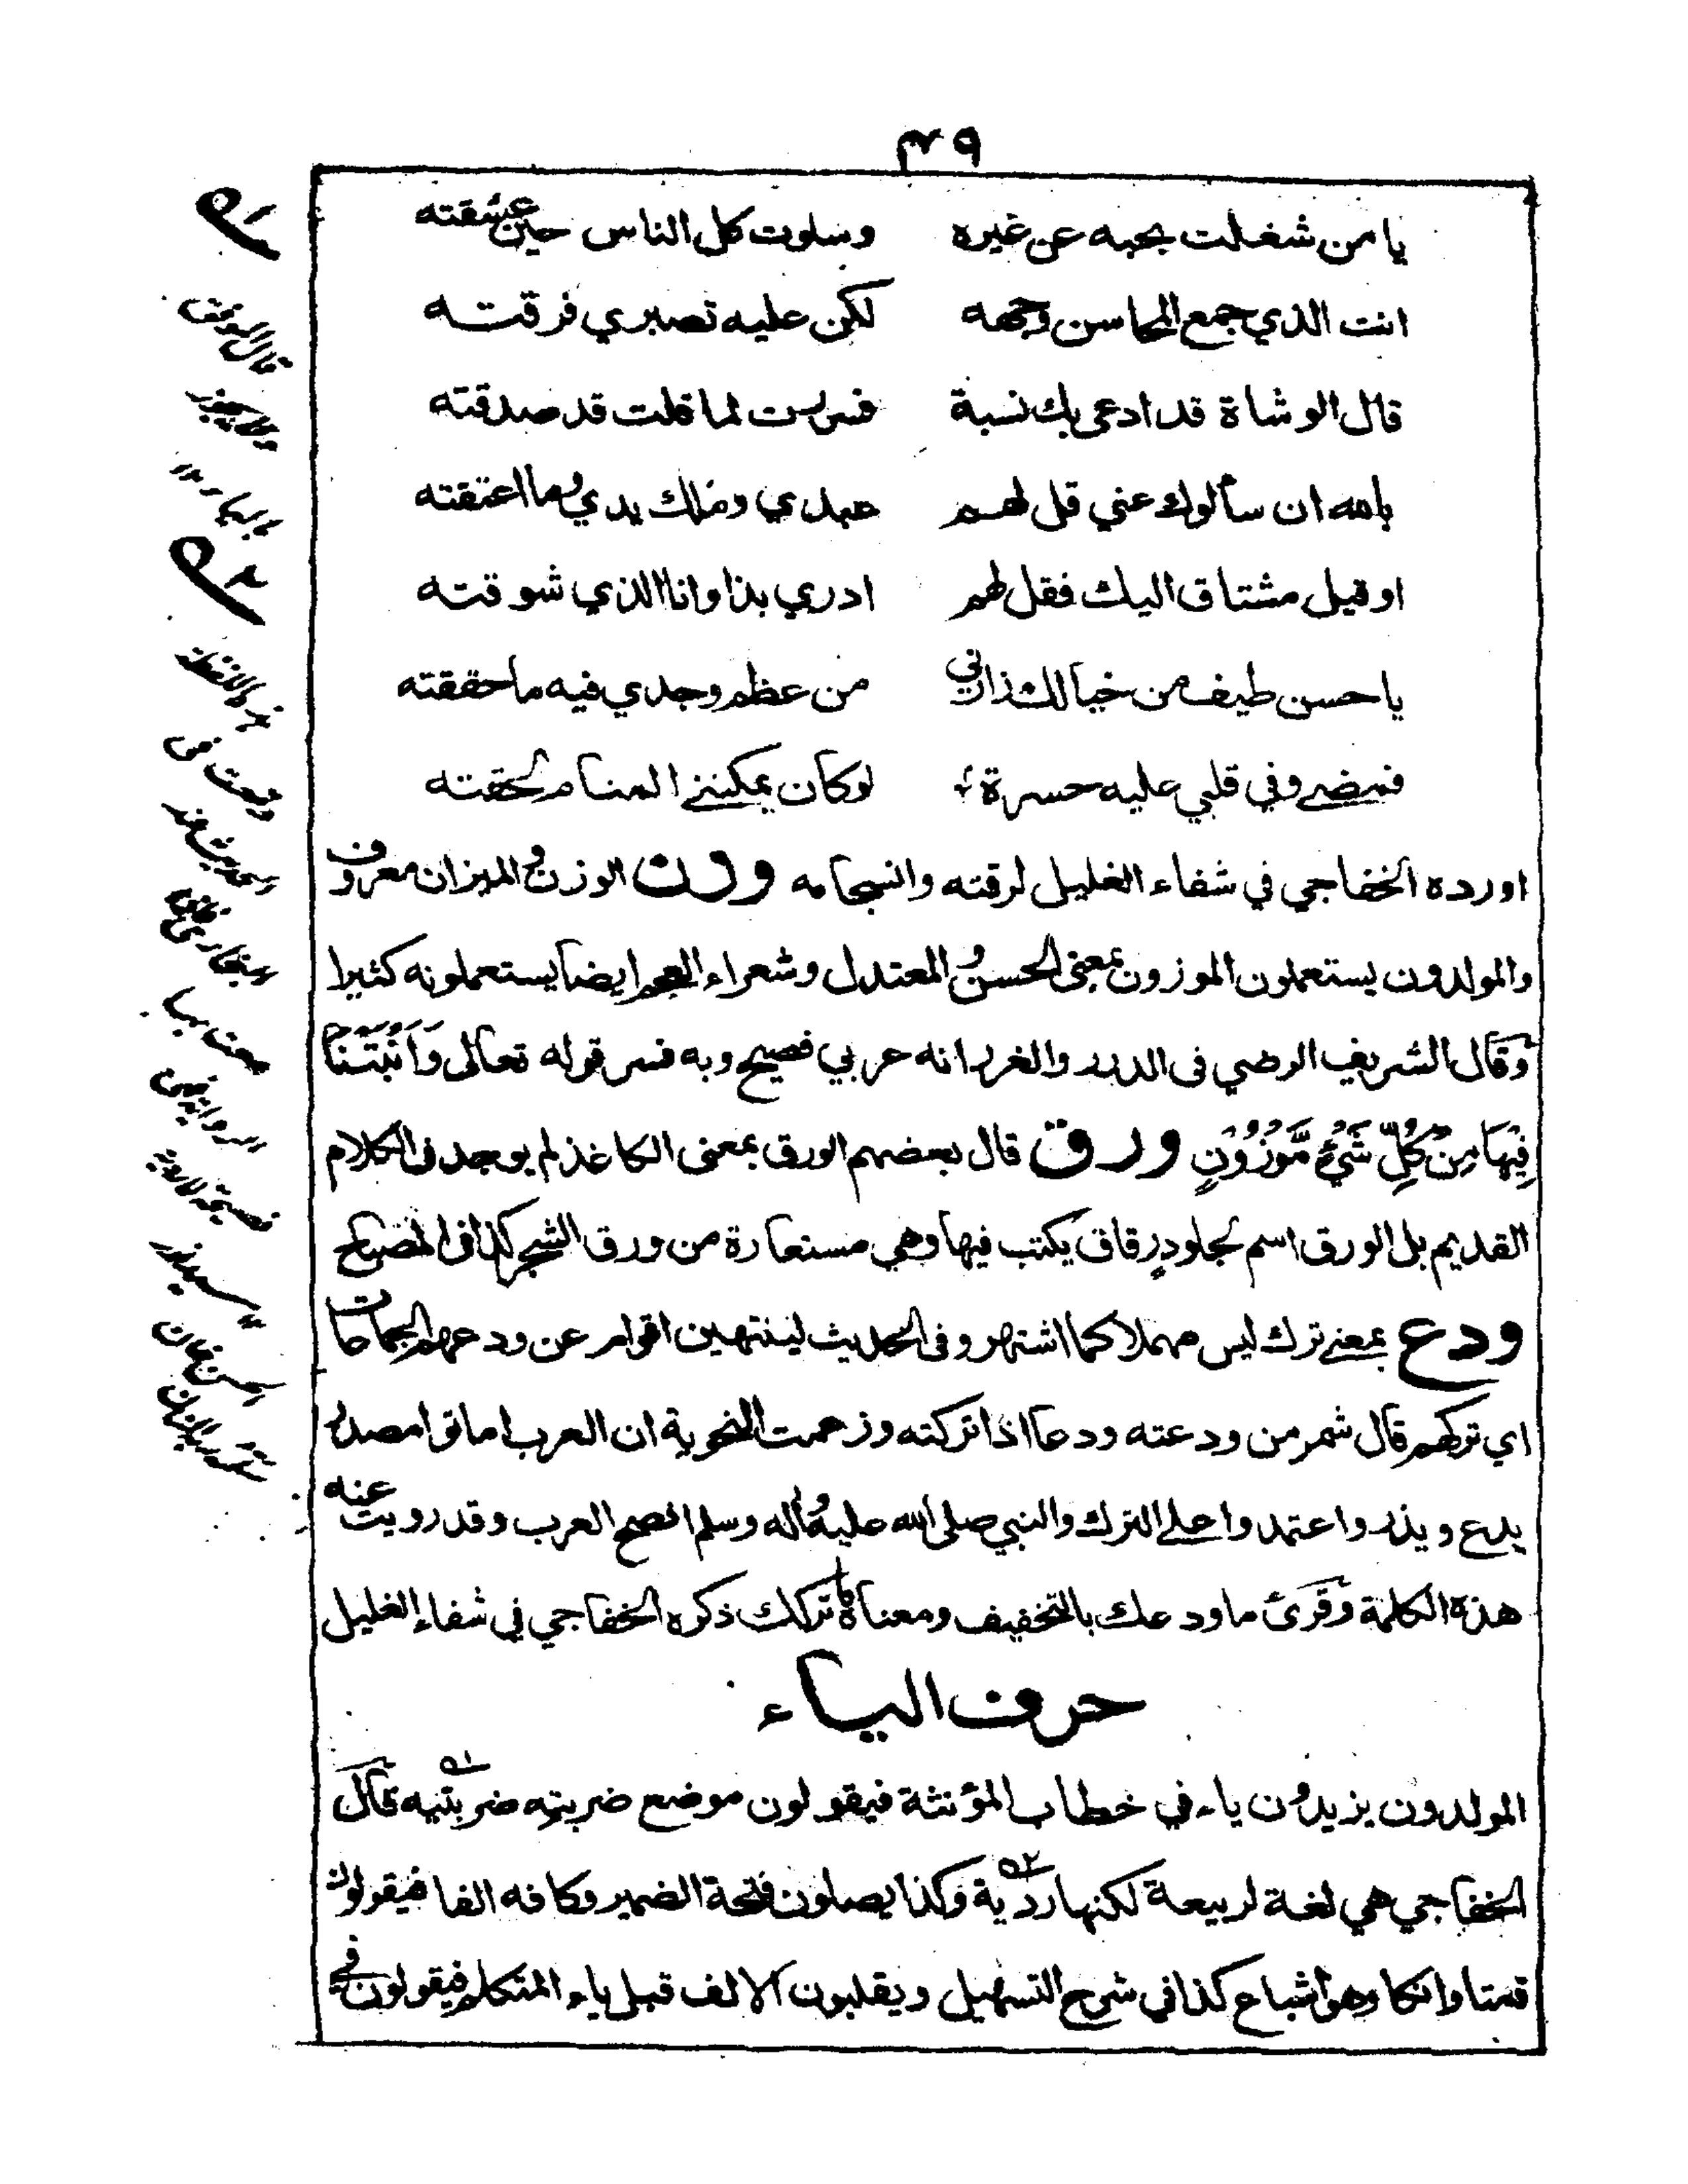 ٤٩
يا من شغلت بحبه عن غيره وسلوت كل الناس حين عشقته
انت الذي جمع المحاسن وجهه لكن عليه تصبري فرقته
قال الوشاة قد ادعى بك نسبة فسررت لما قلت قد صدقته
بالله ان سألوك عني قل لهم عبدي وملك يدي وما اعتقته
او قيل مشتاق اليك فقل لهم ادري بذا وانا الذي شوقته
يا حسن طيف من خيالك زارني من عظم وجدي فيه ما حققته
فمضى وفي قلبي عليه حسرة لو كان يمكنني المنام لحقته
اورده الخفاجي في شفاء الغليل لرقته وانسجامه وزن الوزن والميزان معروف
والمولدون يستعملون الموزون بمعنى الحسن والمعتدل وشعراء العجم ايضا يستعملونه كثيرا
وقال الشريف الرضي في الدرر والغرر انه عربي فصيح وبه فسر قوله تعالى وَاَنْبَتْنَا
فِيْهَا مِنْ كُلِّ شَيْءٍ مَّوْزُوْنٍ ورق قال بعضهم الورق بمعنى الكاغذ لم يوجد في الكلام
القديم بل الورق اسم لجلود رقاق يكتب فيها وهي مستعارة من ورق الشجر كذا في المصباح
ودع بمعنى ترك ليس مهملا كما اشتهر وفي الحديث لينتهين اقوام عن ودعهم الجماعات
اي تركهم قال شمر من ودعته ودعا اذا تركته وزعمت النحوية ان العرب اماتوا مصدر
يدع ويذر واعتمدوا على الترك والنبي صلى الله عليه وآله وسلم افصح العرب وقد رويت عنه
هذه الكلمة وقرئ ما ودعك بالتخفيف ومعناه ما تركك ذكره الخفاجي في شفاء الغليل
حرف الياء
المولدون يزيدون ياء في خطاب المؤنثة فيقولون موضع ضربته ضربتيه قال
الخفاجي هي لغة لربيعة لكنها ردية وكذا يصلون فتحة الضمير وكافه الفا فيقولون
قمتا وانكا وهو اشباع كذا في شرح التسهيل ويقلبون الالف قبل ياء المتكلم فيقولون في